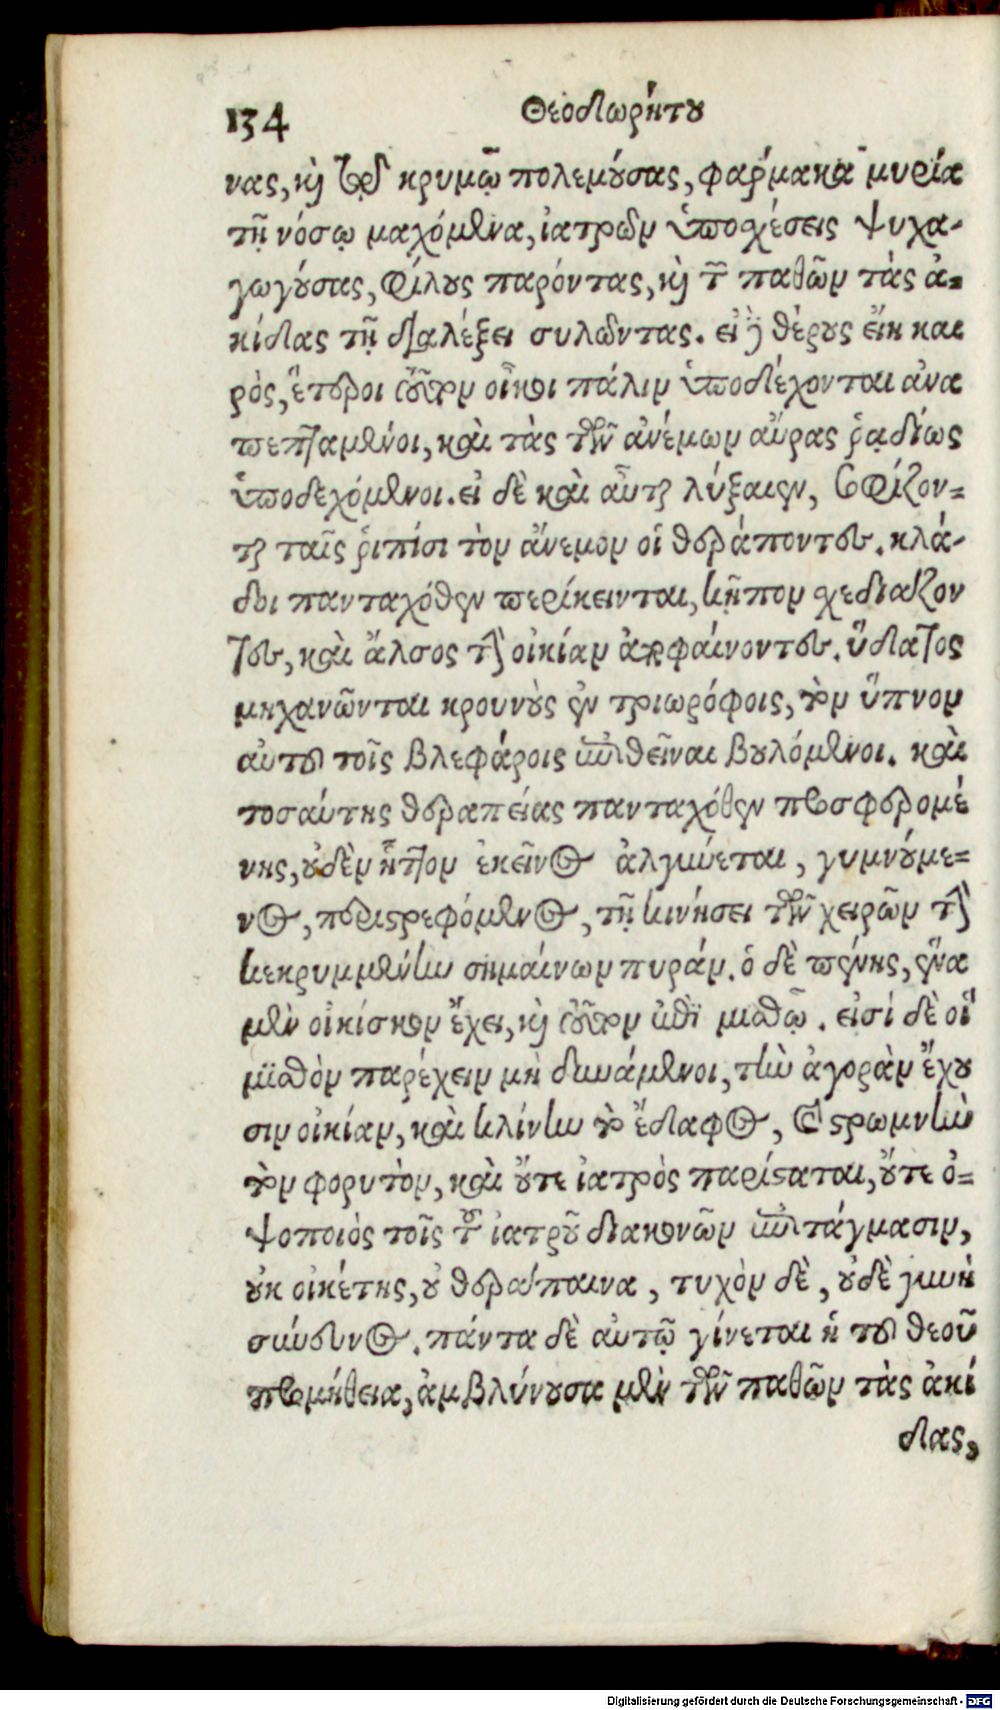 134 Θεοδωρήτου
νας, καὶ τῷ κρυμῷ πολεμούσας, φάρμακα μυρία
τῇ νόσῳ μαχόμενα, ἰατρῶν ὑποσχέσεις ψυχα-
γωγούσας, φίλους παρόντας, καὶ τῶν παθῶν τὰς ἀ-
κίδας τῇ διαλέξει συλῶντας. εἰ δὲ θέρους εἴη και
ρὸς, ἕτεροι τοῦτον οἶκοι πάλιν ὑποδέχονται ἀνα
πεπταμένοι, καὶ τὰς τῶν ἀνέμων αὔρας ῥᾳδίως
ὑποδεχόμενοι. εἰ δὲ καὶ αὗται λήξαιεν, ἐρεθίζον-
ται ταῖς ῥιπίσι τὸν ἄνεμον οἱ θεράποντες. κλά-
δοι πανταχόθεν περίκεινται, κῆπον σχεδιάζον
τες, καὶ ἄλσος τὴν οἰκίαν ἀποφαίνοντες. ὕδατος
μηχανῶνται κρουνοὺς ἐν τριωρόφοις, τὸν ὕπνον
αὐτοῦ τοῖς βλεφάροις ἐπιθεῖναι βουλόμενοι. καὶ
τοσαύτης θεραπείας πανταχόθεν προσφερομέ
νης, οὐδὲν ἧττον ἐκεῖνος ἀλγύνεται, γυμνούμε-
νος, περιστρεφόμενος, τῇ κινήσει τῶν χειρῶν τὴν
κεκρυμμένην σημαίνων πυράν. ὁ δὲ πένης, ἕνα
μὲν οἰκίσκον ἔχει, καὶ τοῦτον ἐπὶ μισθῷ. εἰσὶ δὲ οἳ
μισθὸν παρέχειν μὴ δυνάμενοι, τὴν ἀγορὰν ἔχου
σιν οἰκίαν, καὶ κλίνην τὸ ἔδαφος, καὶ στρωμνὴν
τὸν φορυτὸν, καὶ οὔτε ἰατρὸς παρίσταται, οὔτε ὀ-
ψοποιὸς τοῖς τοῦ ἰατροῦ διακονῶν ἐπιτάγμασιν,
οὐκ οἰκέτης, οὐ θεράπαινα, τυχὸν δὲ, οὐδὲ γυνὴ
σύνευνος. πάντα δὲ αὐτῷ γίνεται ἡ τοῦ θεοῦ
προμήθεια, ἀμβλύνουσα μὲν τῶν παθῶν τὰς ἀκί
δας,
Digitalisierung gefördert durch die Deutsche Forschungsgemeinschaft - DFG